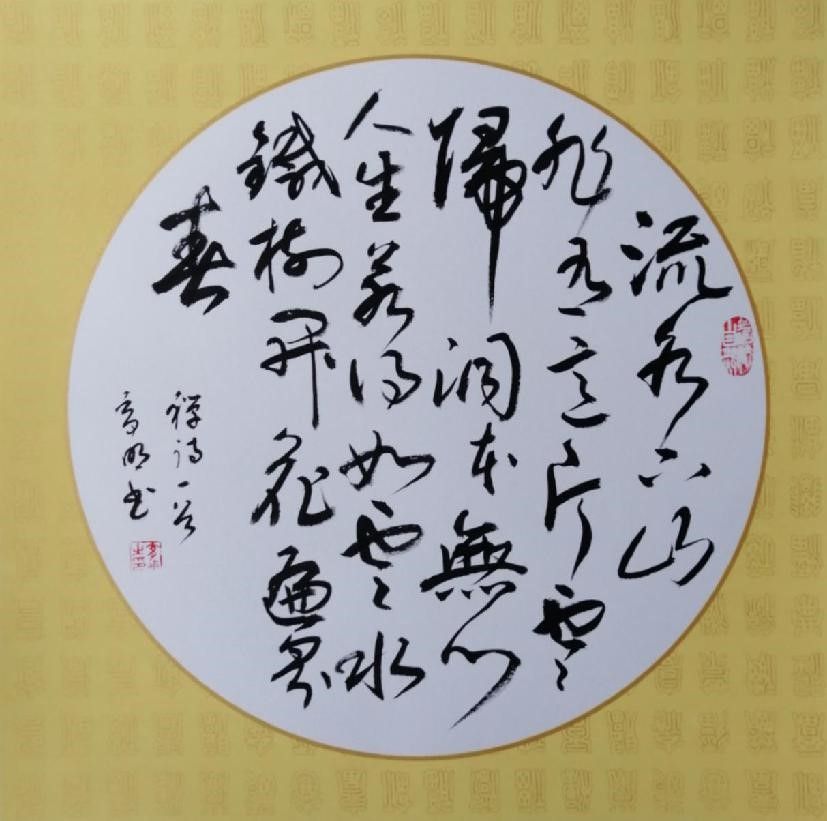 流水下山
非有意片雲
歸洞本無心
人生若得如雲水
鐵樹開花遍界
春
禪詩一首
明书